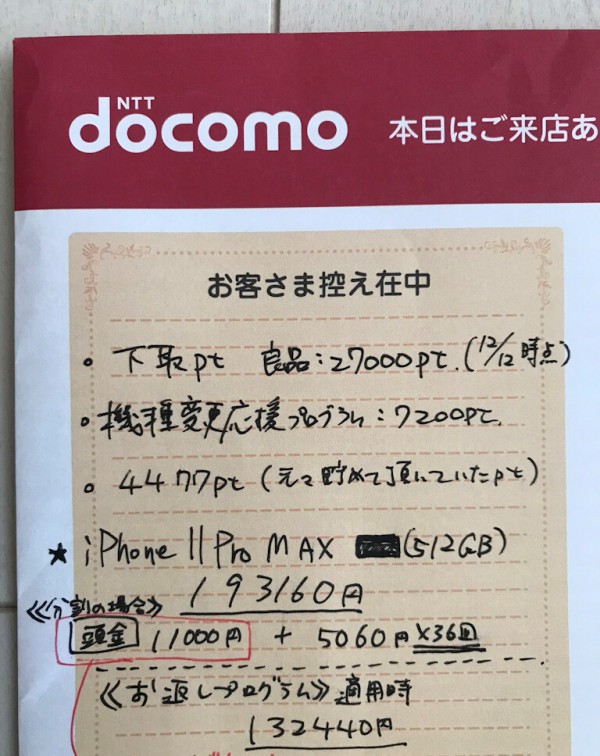 NTT
docomo 本日はご来店あ
お客さま控え在中
・下取pt 良品:27000pt.(12/12時点)
・機種変更応援プログラム:7200pt.
・4477pt(元々貯めて頂いていたpt)
★iPhone 11 Pro MAX (512GB)
193160円
≪分割の場合≫
頭金 11000円 + 5060円×36回
≪お返しプログラム≫適用時
132440円